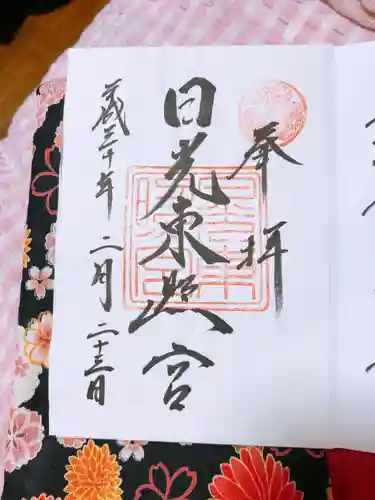 奉拝
日光東照宮
平成三十年二月二十三日